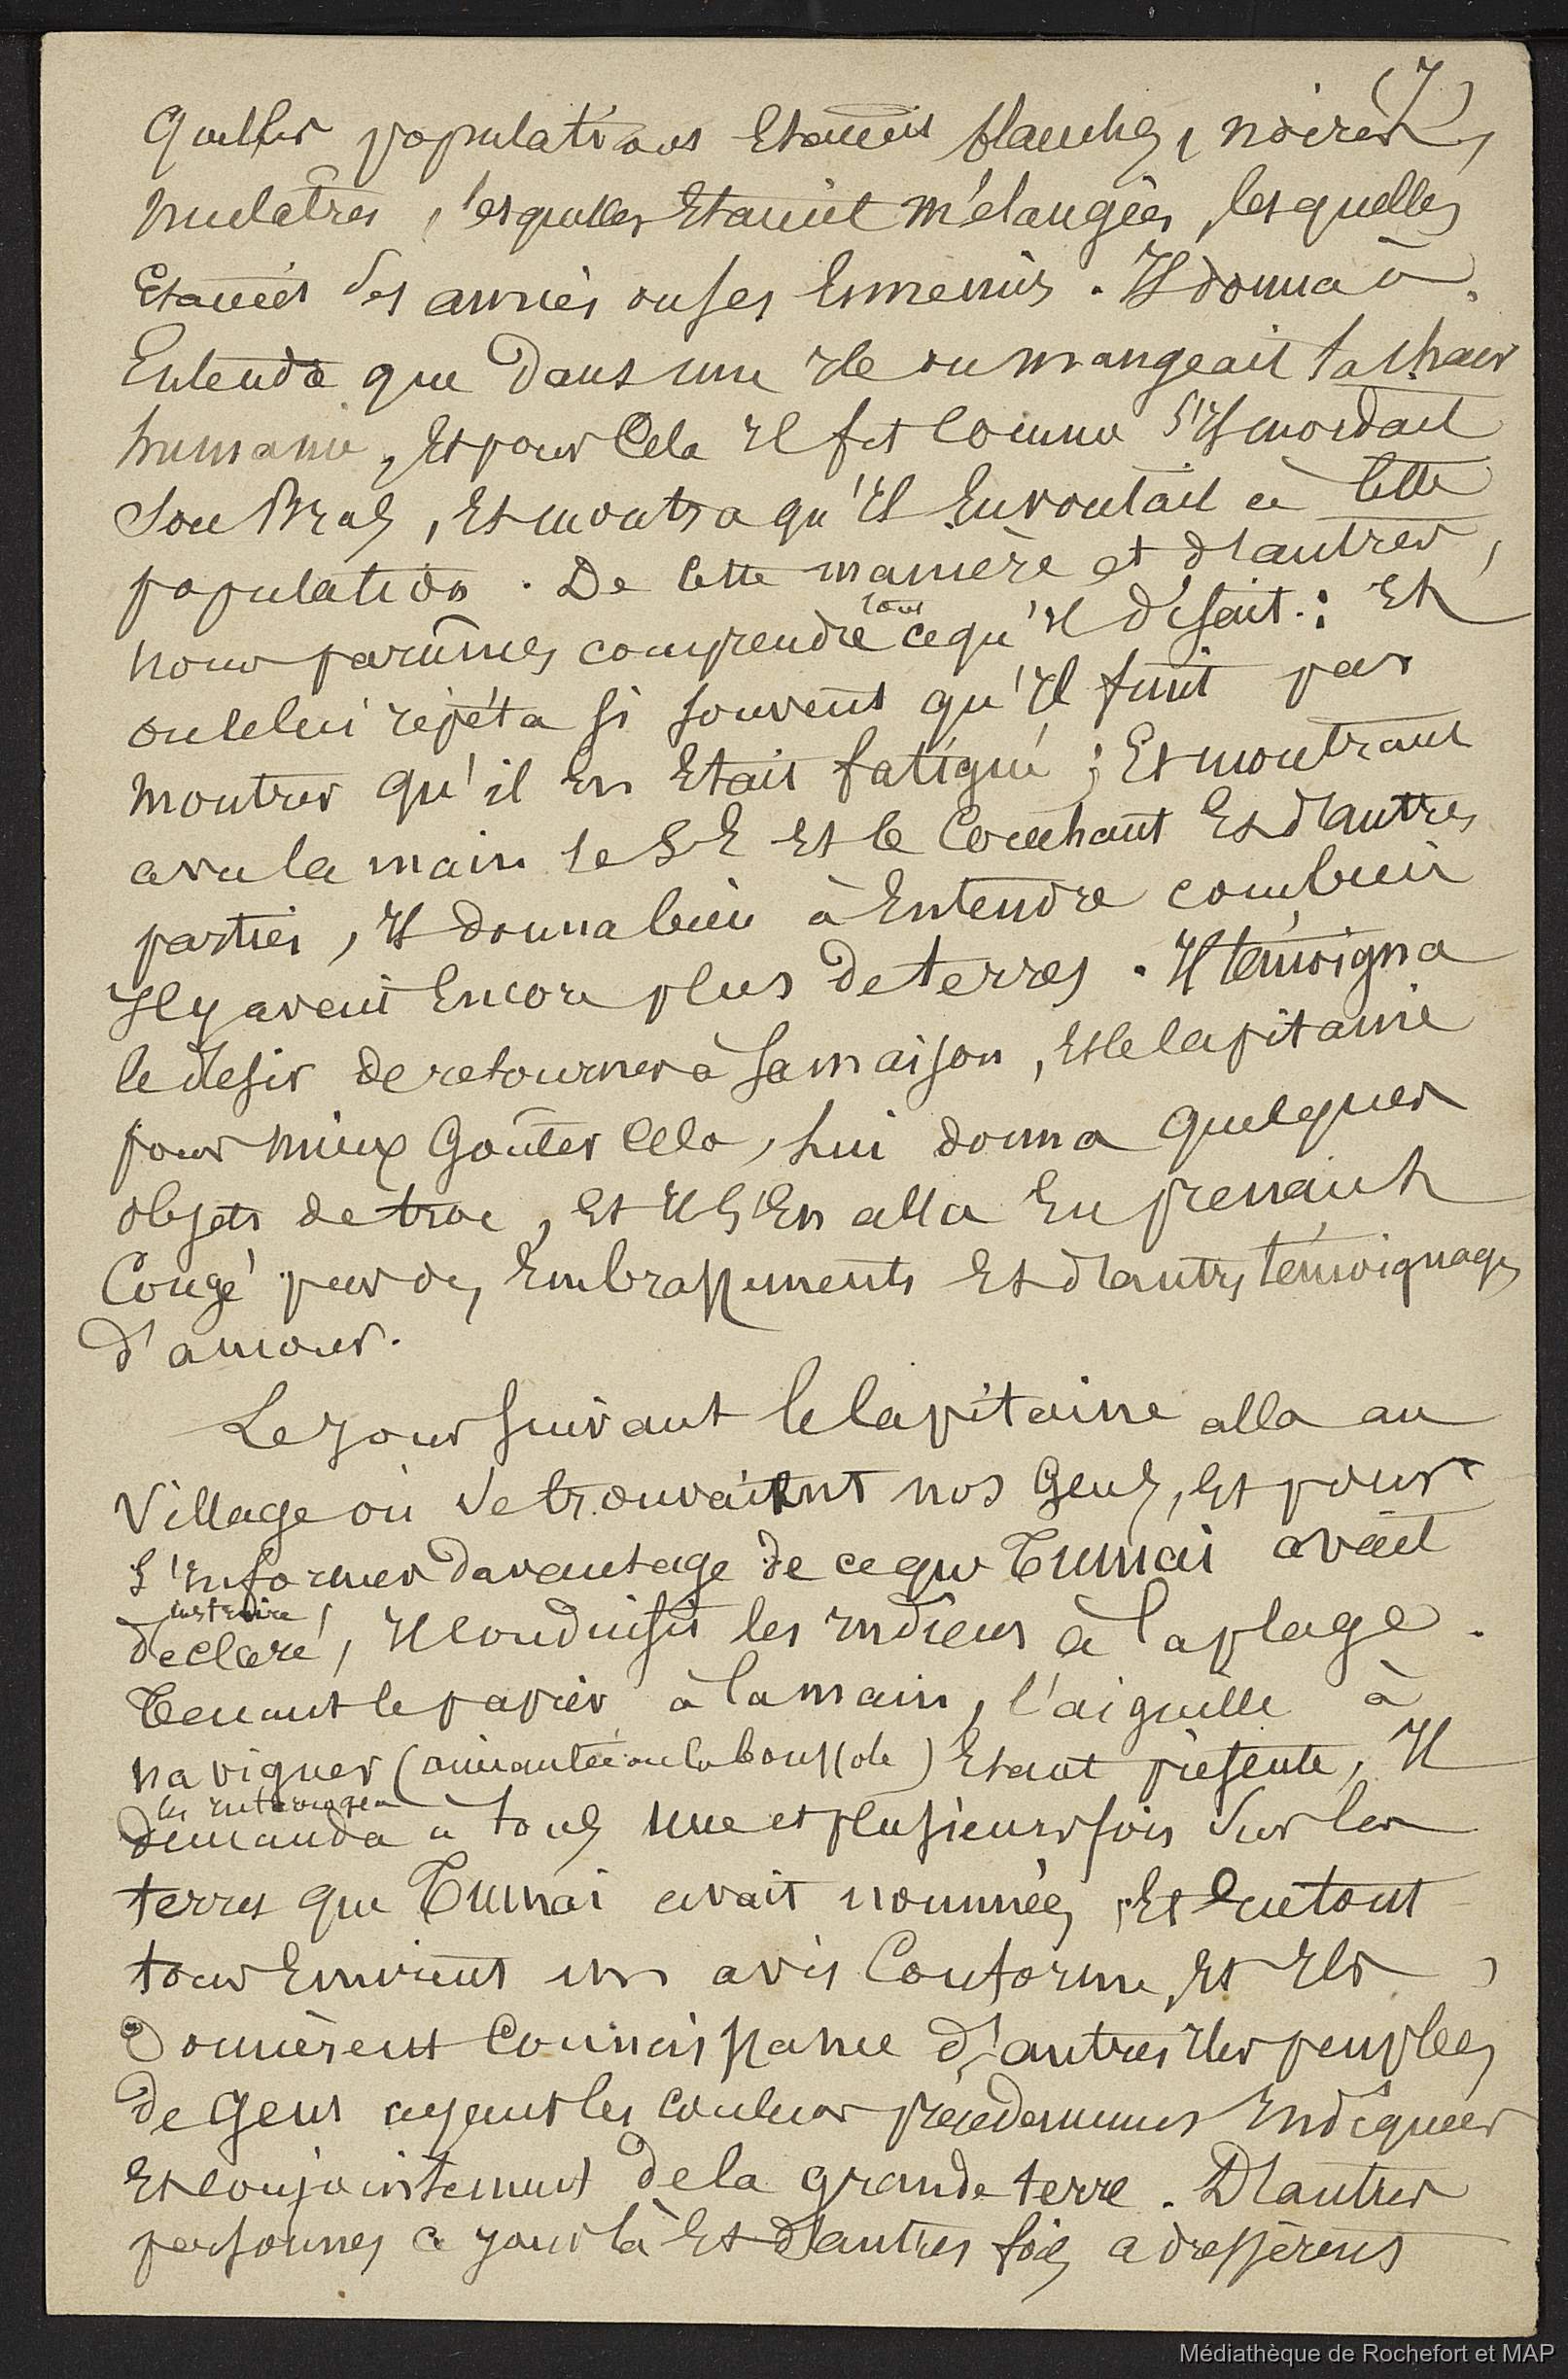 (7)
Quelles populations Etaient blanches, noires,
mulâtres, lesquelles Etaient mélangées, lesquelles
Etaient ses amies ou ses Ennemies. Il donna à
Entendre que dans une Ile on mangeait la chair
humaine, Et pour Cela Il fit Comme s'Il mordait
Son Bras, Et montra qu'Il En voulait à Cette
population. De Cette manière et d'autres,
nous parûmes comprendre tout ce qu'Il disait : Et
on le lui répéta si souvent qu'Il finit par
montrer qu'il En Etait fatigué ; Et montrant
avec la main le SE Et le Couchant Et d'autres
parties, Il donna bien à Entendre combien
Il y avait Encore plus de terres. Il témoigna
le desir de retourner à sa maison, Et le Capitaine
pour mieux Goûter Cela, lui donna quelques
objets de troc, Et Il s'En alla En prenant
Congé par des Embrassements Et d'autres témoignages
d'amour.
Le Jour suivant le Capitaine alla au
Village où se trouvaient nos Gens, Et pour
s'Informer davantage de ce que Tumai avait
déclaré, Il Conduisit les Indiens à la plage.
Tenant le papier à la main, l'aiguille à
naviguer (aimantée ou la boussole) Etant présente, Il
les interrogea
demanda à tous une et plusieurs fois sur les
terres que Tumai avait nommées, Et En tout
tous Emirent un avis Conforme, Et Ils
Donnèrent Connaissance d'autres Iles peuplées
de Gens ayant les Couleurs précédemment Indiquées
Et Conjointement de la grande terre. D'autres
personnes ce Jour là Et d'autres fois adressèrent
Médiathèque de Rochefort et MAP